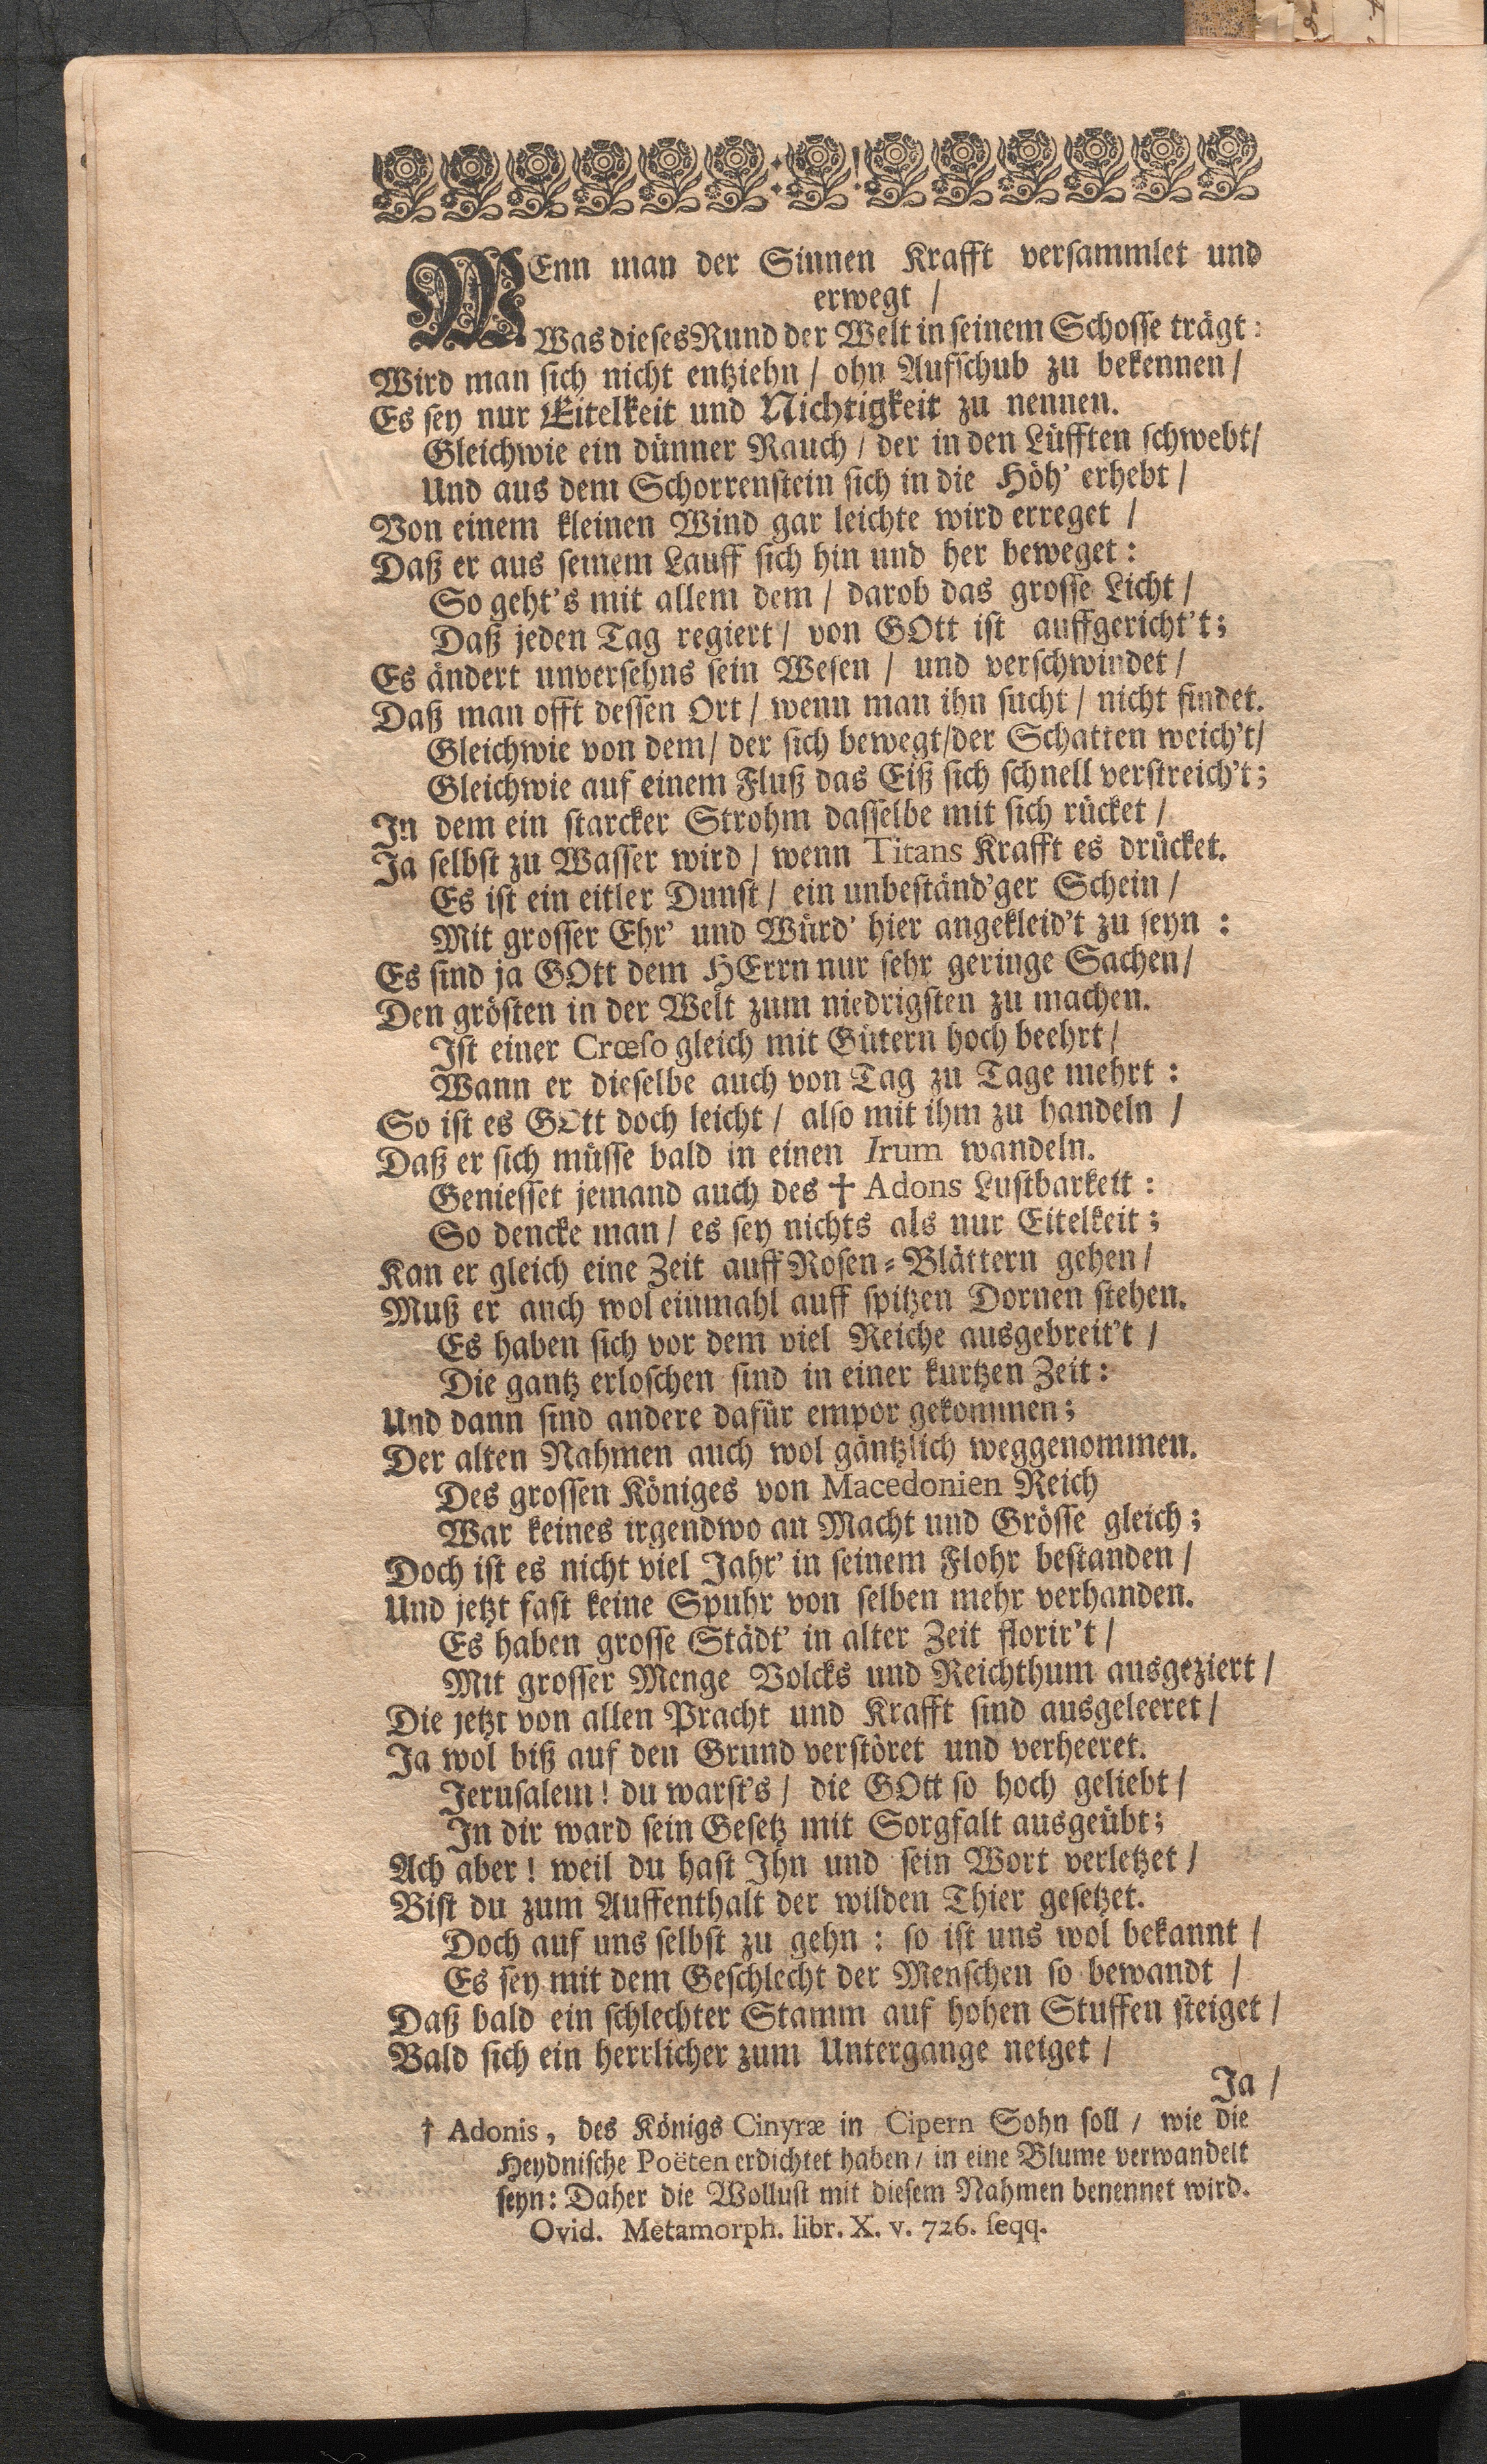 WEnn man der Sinnen Krafft versammlet und
erwegt /
Was dieses Rund der Welt in seinem Schosse trägt:
Wird man sich nicht entziehn / ohn Aufschub zu bekennen /
Es sey nur Eitelkeit und Nichtigkeit zu nennen.
Gleichwie ein dünner Rauch / der in den Lüfften schwebt/
Und aus dem Schorrenstein sich in die Höh' erhebt /
Von einem kleinen Wind gar leichte wird erreget /
Daß er aus seinem Lauff sich hin und her beweget:
So geht's mit allem dem / darob das grosse Licht /
Daß jeden Tag regiert / von GOtt ist auffgericht't;
Es ändert unversehns sein Wesen / und verschwindet /
Daß man offt dessen Ort / wenn man ihn sucht / nicht findet.
Gleichwie von dem/ der sich bewegt/der Schatten weich't/
Gleichwie auf einem Fluß das Eiß sich schnell verstreich't;
In dem ein starcker Strohm dasselbe mit sich rücket /
Ja selbst zu Wasser wird / wenn Titans Krafft es drücket.
Es ist ein eitler Dunst / ein unbeständ'ger Schein /
Mit grosser Ehr' und Würd' hier angekleid't zu seyn :
Es sind ja GOtt dem HErrn nur sehr geringe Sachen/
Den grösten in der Welt zum niedrigsten zu machen.
Ist einer Crœso gleich mit Gütern hoch beehrt /
Wann er dieselbe auch von Tag zu Tage mehrt :
So ist es GOtt doch leicht / also mit ihm zu handeln /
Daß er sich müsse bald in einen Irum wandeln.
Geniesset jemand auch des † Adons Lustbarkeit :
So dencke man / es sey nichts als nur Eitelkeit ;
Kan er gleich eine Zeit auff Rosen-Blättern gehen /
Muß er auch wol einmahl auff spitzen Dornen stehen.
Es haben sich vor dem viel Reiche ausgebreit't /
Die gantz erloschen sind in einer kurtzen Zeit :
Und dann sind andere dafür empor gekommen ;
Der alten Nahmen auch wol gäntzlich weggenommen.
Des grossen Königes von Macedonien Reich
War keines irgendwo an Macht und Grösse gleich ;
Doch ist es nicht viel Jahr' in seinem Flohr bestanden /
Und jetzt fast keine Spuhr von selben mehr verhanden.
Es haben grosse Städt' in alter Zeit florir't /
Mit grosser Menge Volcks und Reichthum ausgeziert /
Die jetzt von allen Pracht und Krafft sind ausgeleeret /
Ja wol biß auf den Grund verstöret und verheeret.
Jerusalem! du warst's / die GOtt so hoch geliebt /
In dir ward sein Gesetz mit Sorgfalt ausgeübt;
Ach aber! weil du hast Ihn und sein Wort verletzet /
Bist du zum Auffenthalt der wilden Thier gesetzet.
Doch auf uns selbst zu gehn : so ist uns wol bekannt /
Es sey mit dem Geschlecht der Menschen so bewandt /
Daß bald ein schlechter Stamm auf hohen Stuffen steiget /
Bald sich ein herrlicher zum Untergange neiget /
Ja /
† Adonis, des Königs Cinyræ in Cipern Sohn soll / wie die
Heydnische Poëten erdichtet haben / in eine Blume verwandelt
seyn: Daher die Wollust mit diesem Nahmen benennet wird.
Ovid. Metamorph. libr. X. v. 726. seqq.